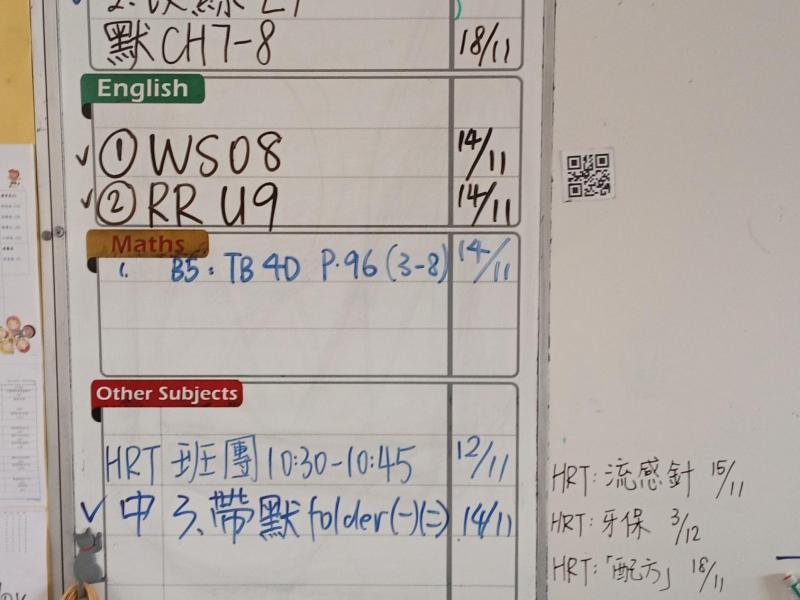 默CH7-8 18/11
English
✓ ① WS08 14/11
✓ ② RR U9 14/11
Maths
1. B5: TB 4D P.96 (3-8) 14/11
Other Subjects
HRT 班團 10:30-10:45 12/11
✓ 中 3. 帶默folder(一)(二) 14/11
HRT: 流感針 15/11
HRT: 牙保 3/12
HRT:「配方」 18/11